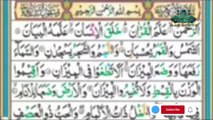 بِسْمِ اللهِ الرَّحْمٰنِ الرَّحِيْمِ
اَلرَّحْمٰنُ عَلَّمَ الْقُرْاٰنَ خَلَقَ الْاِنْسَانَ عَلَّمَهُ الْبَيَانَ
اَلشَّمْسُ وَالْقَمَرُ بِحُسْبَانٍ وَّالنَّجْمُ وَالشَّجَرُ يَسْجُدٰنِ وَالسَّمَآءَ
رَفَعَهَا وَوَضَعَ الْمِيْزَانَ اَلَّا تَطْغَوْا فِي الْمِيْزَانِ وَاَقِيْمُوا
الْوَزْنَ بِالْقِسْطِ وَلَا تُخْسِرُوا الْمِيْزَانَ وَالْاَرْضَ وَضَعَهَا
وَّالنَّخْلُ ذَاتُ الْاَكْمَامِ الْعَصْفِ
SUBSCRIBE